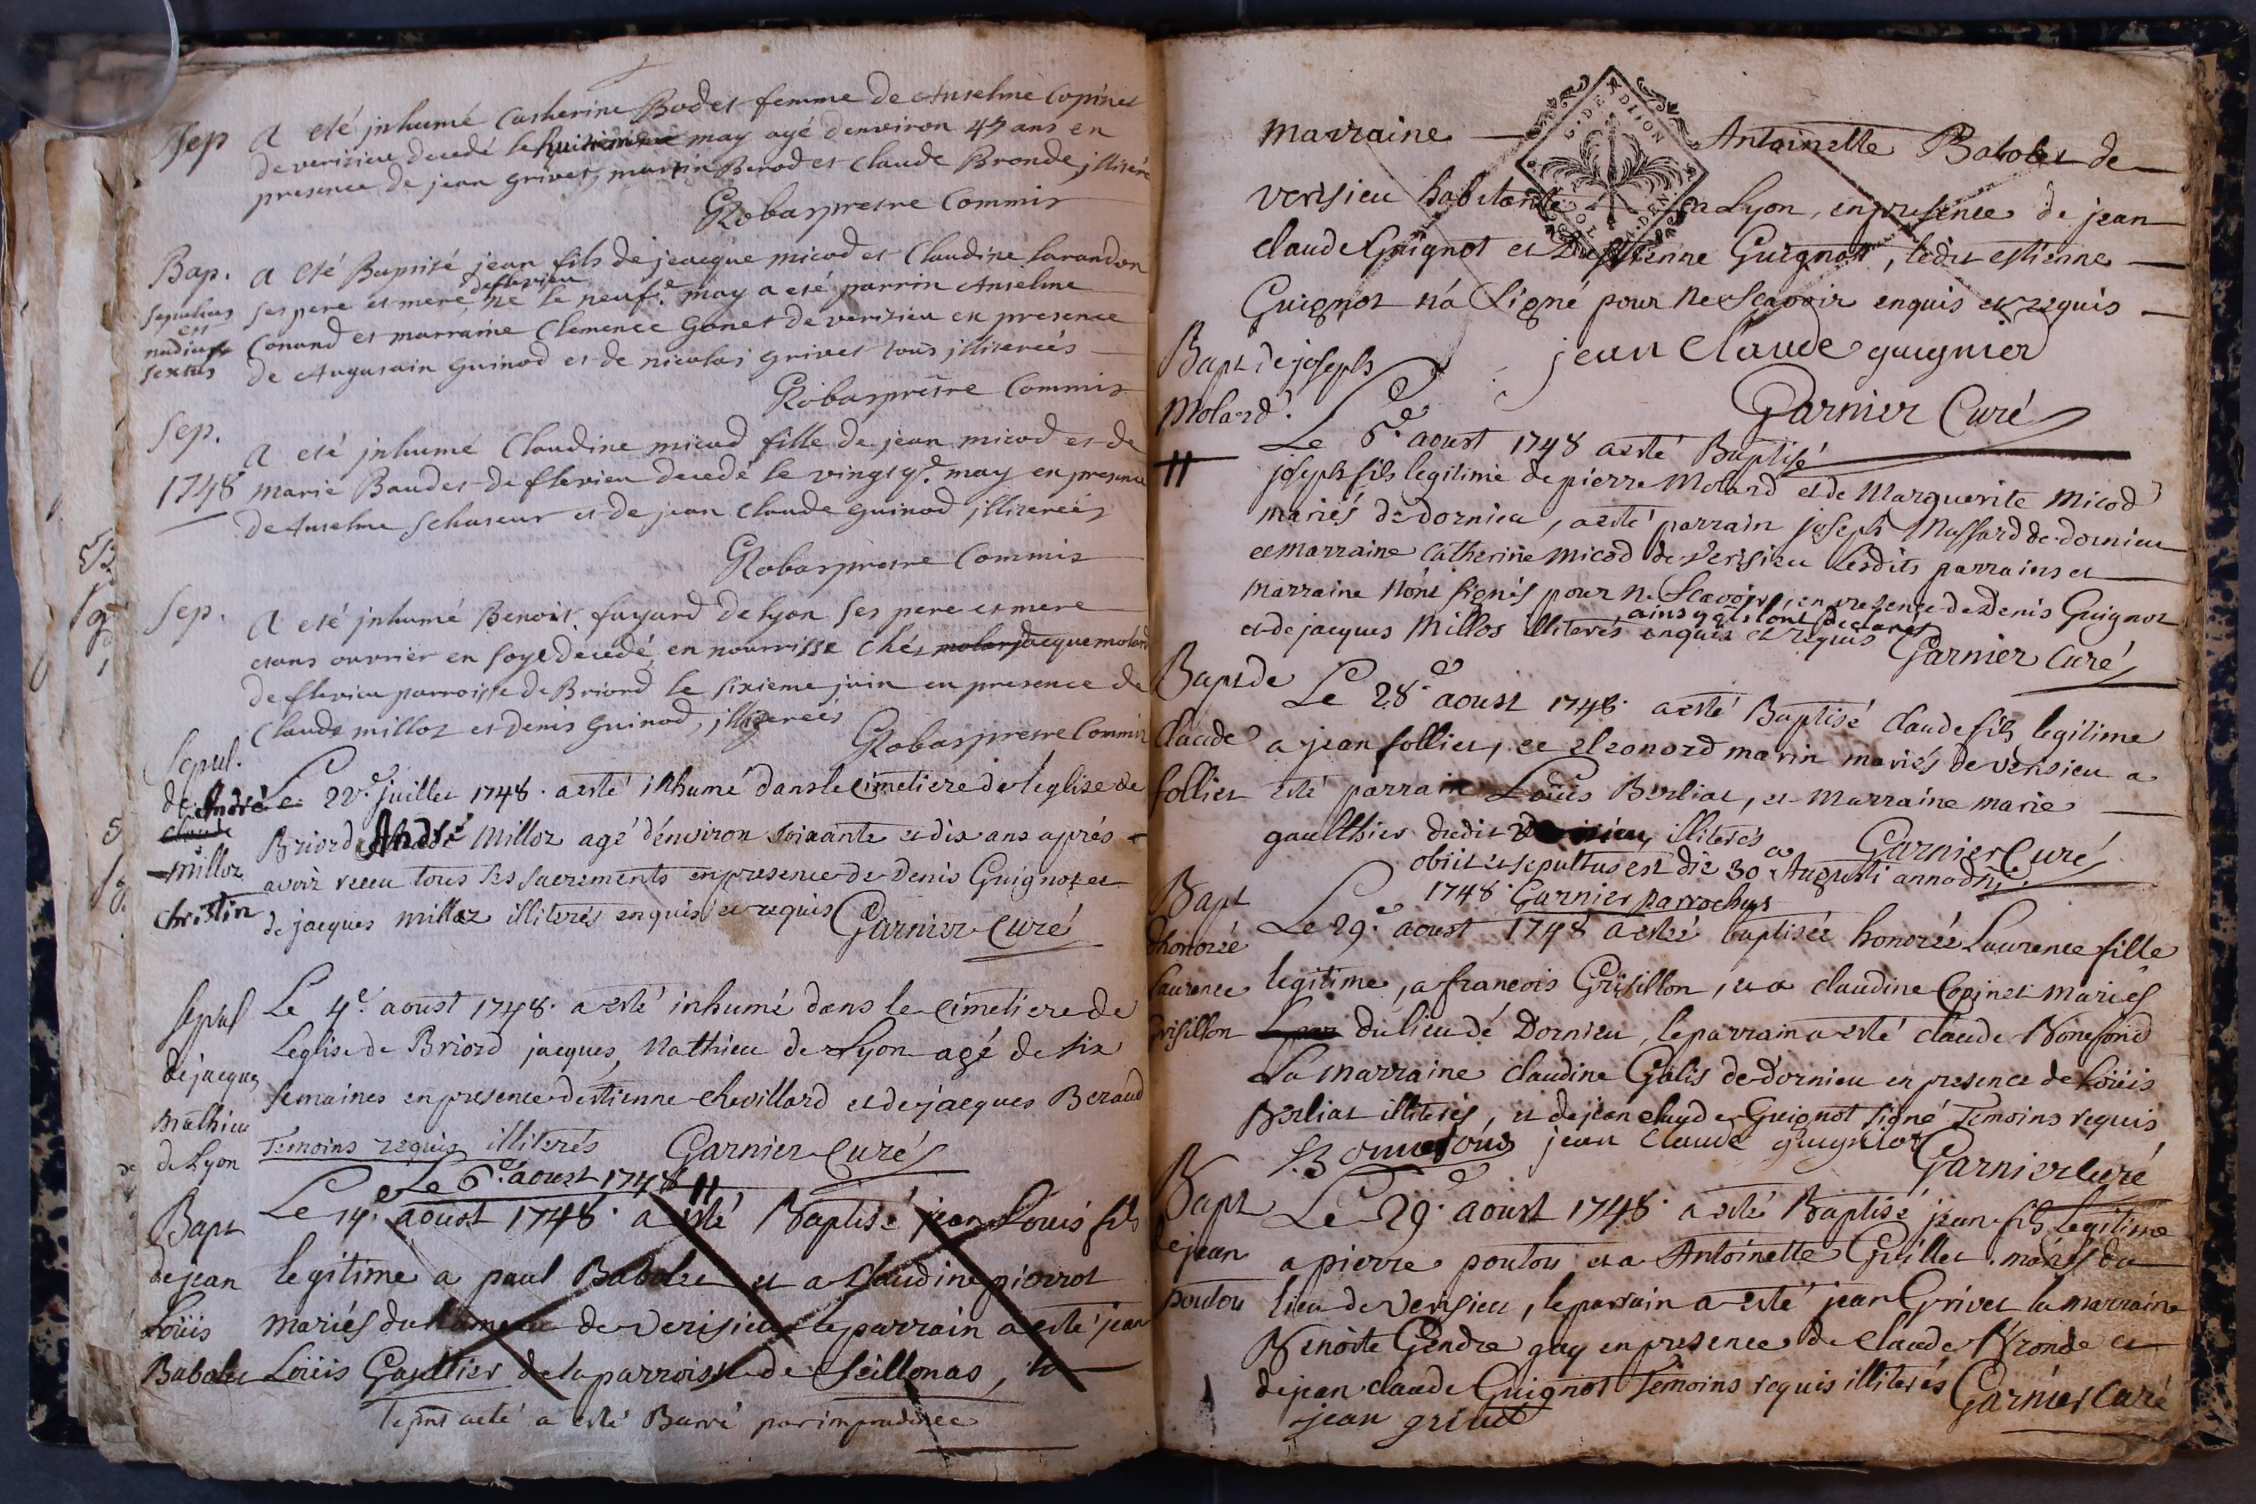 Sep a eté jnhumé Catherine Bodet femme de Anselme Copinet
de verisieu decedé le huitieme may agé denviron 47 ans en
presence de jean grivet, martin Berod et Claude Bronde jlliteré
Robas pretre Commis
Bap. a eté Baptisé jean fils de jeacque micod et Claudine Larandon
sepultus est nudius sextus
ses pere et mere de flevieu né le neuf.e may a eté parrin Anselme
Conand et marraine Clemence Gonet de verisieu en presence
de Augustin guinod et de nicolas grivet tous jlliterées
Robas pretre Commis
Sep.
1748
a eté jnhumé Claudine micud fille de jean micod et de
marie Baudet de flevieu decedé le vingt 9.e may en presence
de Anselme schaseur et de jean Claude guinod jlliterées
Robas pretre Commis
Sep. a eté jnhumé Benoit fayard de lyon ses pere et mere
etans ouvrier en soye decedé en nourrisse chés jacque molard
de flevieu parroisse de Briord le sixieme juin en presence de
Claude milloz et denis guinod, jlliterées
Robas pretre Commis
Sepul.
de André
Claude
milloz
Christin
Le 22.e juillet 1748. a esté inhumé dans le Cimetiere de l'eglise de
Briord André Milloz agé d'environ soixante et dix ans aprés
avoir receu tous les sacrements en presence de Denis Guignot et
de jacques milloz illiterés enquis et requis Garnier Curé
Sepul
de jacques
Mathieu
de Lyon
Le 4.e aoust 1748. a esté inhumé dans le Cimetiere de
Leglise de Briord jacques Mathieu de Lyon agé de six
semaines en presence d'estienne Chevillard et de jacques Beraud
Temoins requis illiterés Garnier Curé
Le 6.e aoust 1748
Bapt
de jean
Loüis
Babolet
Le 14.e aoust 1748. a esté Baptisé jean Loüis fils
legitime a paul Babolet et a Claudine pierrot
mariés du hameau de Verisieu le parrain a esté jean
Loüis Gaultier de la parroisse de Seillonas, la
le pnt acte a esté Barré par imprudence
marraine Antoinette Babolet de
verisieu habitante a Lyon, en presence de jean
claude Guignot et D'estienne Guignot, ledit estienne
Guignot n'a signé pour ne scavoir enquis et requis
jean Claude guignier
Garnier Curé
Bapt de joseph
Molard.
Le 6.e aoust 1748 a esté Baptisé
joseph fils legitime de pierre Molard et de Marguerite Micod
mariés de dornieu, a esté parrain joseph Massard de dornieu
et marraine Catherine micod de verisieu lesdits parrains et
marraine n'ont signés pour ne Scavoir, en presence de Denis Guignot
ainsy qu'ils l'ont declarés
et de jacques Millos illiterés enquis et requis Garnier Curé
Bapt de
Claude
follier
Le 28.e aoust 1748. a esté Baptisé claude fils legitime
a jean follier, et eleonord marin mariés de verisieu a
esté parrain Loüis Berliat, et Marraine marie
gaulthier dudit verisieu, illiterés Garnier Curé
obiit et sepultus est die 30.a Augusti anno dni
1748. Garnier parrochus
Bapt
d'honorée
Laurence
Grisillon
Le 29.e aoust 1748 a esté baptisée honorée Laurence fille
legitime, a francois Grisillon, et a claudine Copinet mariés
du lieu dé Dornieu, le parrain a esté claude Bonefond
La marraine claudine Galis de dornieu en presence de Loüis
Berliat illiterés, et de jean claude Guignot signé Temoins requis
Bonnefons jean Claude guignot
Garnier Curé
Bapt
de jean
poutou
Le 29.e aoust 1748. a esté Baptisé jean fils legitime
a pierre poutou et a Antoinette Guillet mariés du
lieu de Verisieu, le parrain a esté jean Grivet la marraine
Benoite Gendre guy en presence de Claude Bronde et
de jean claude Guignot Temoins requis illiterés Garnier Curé
jean grivet